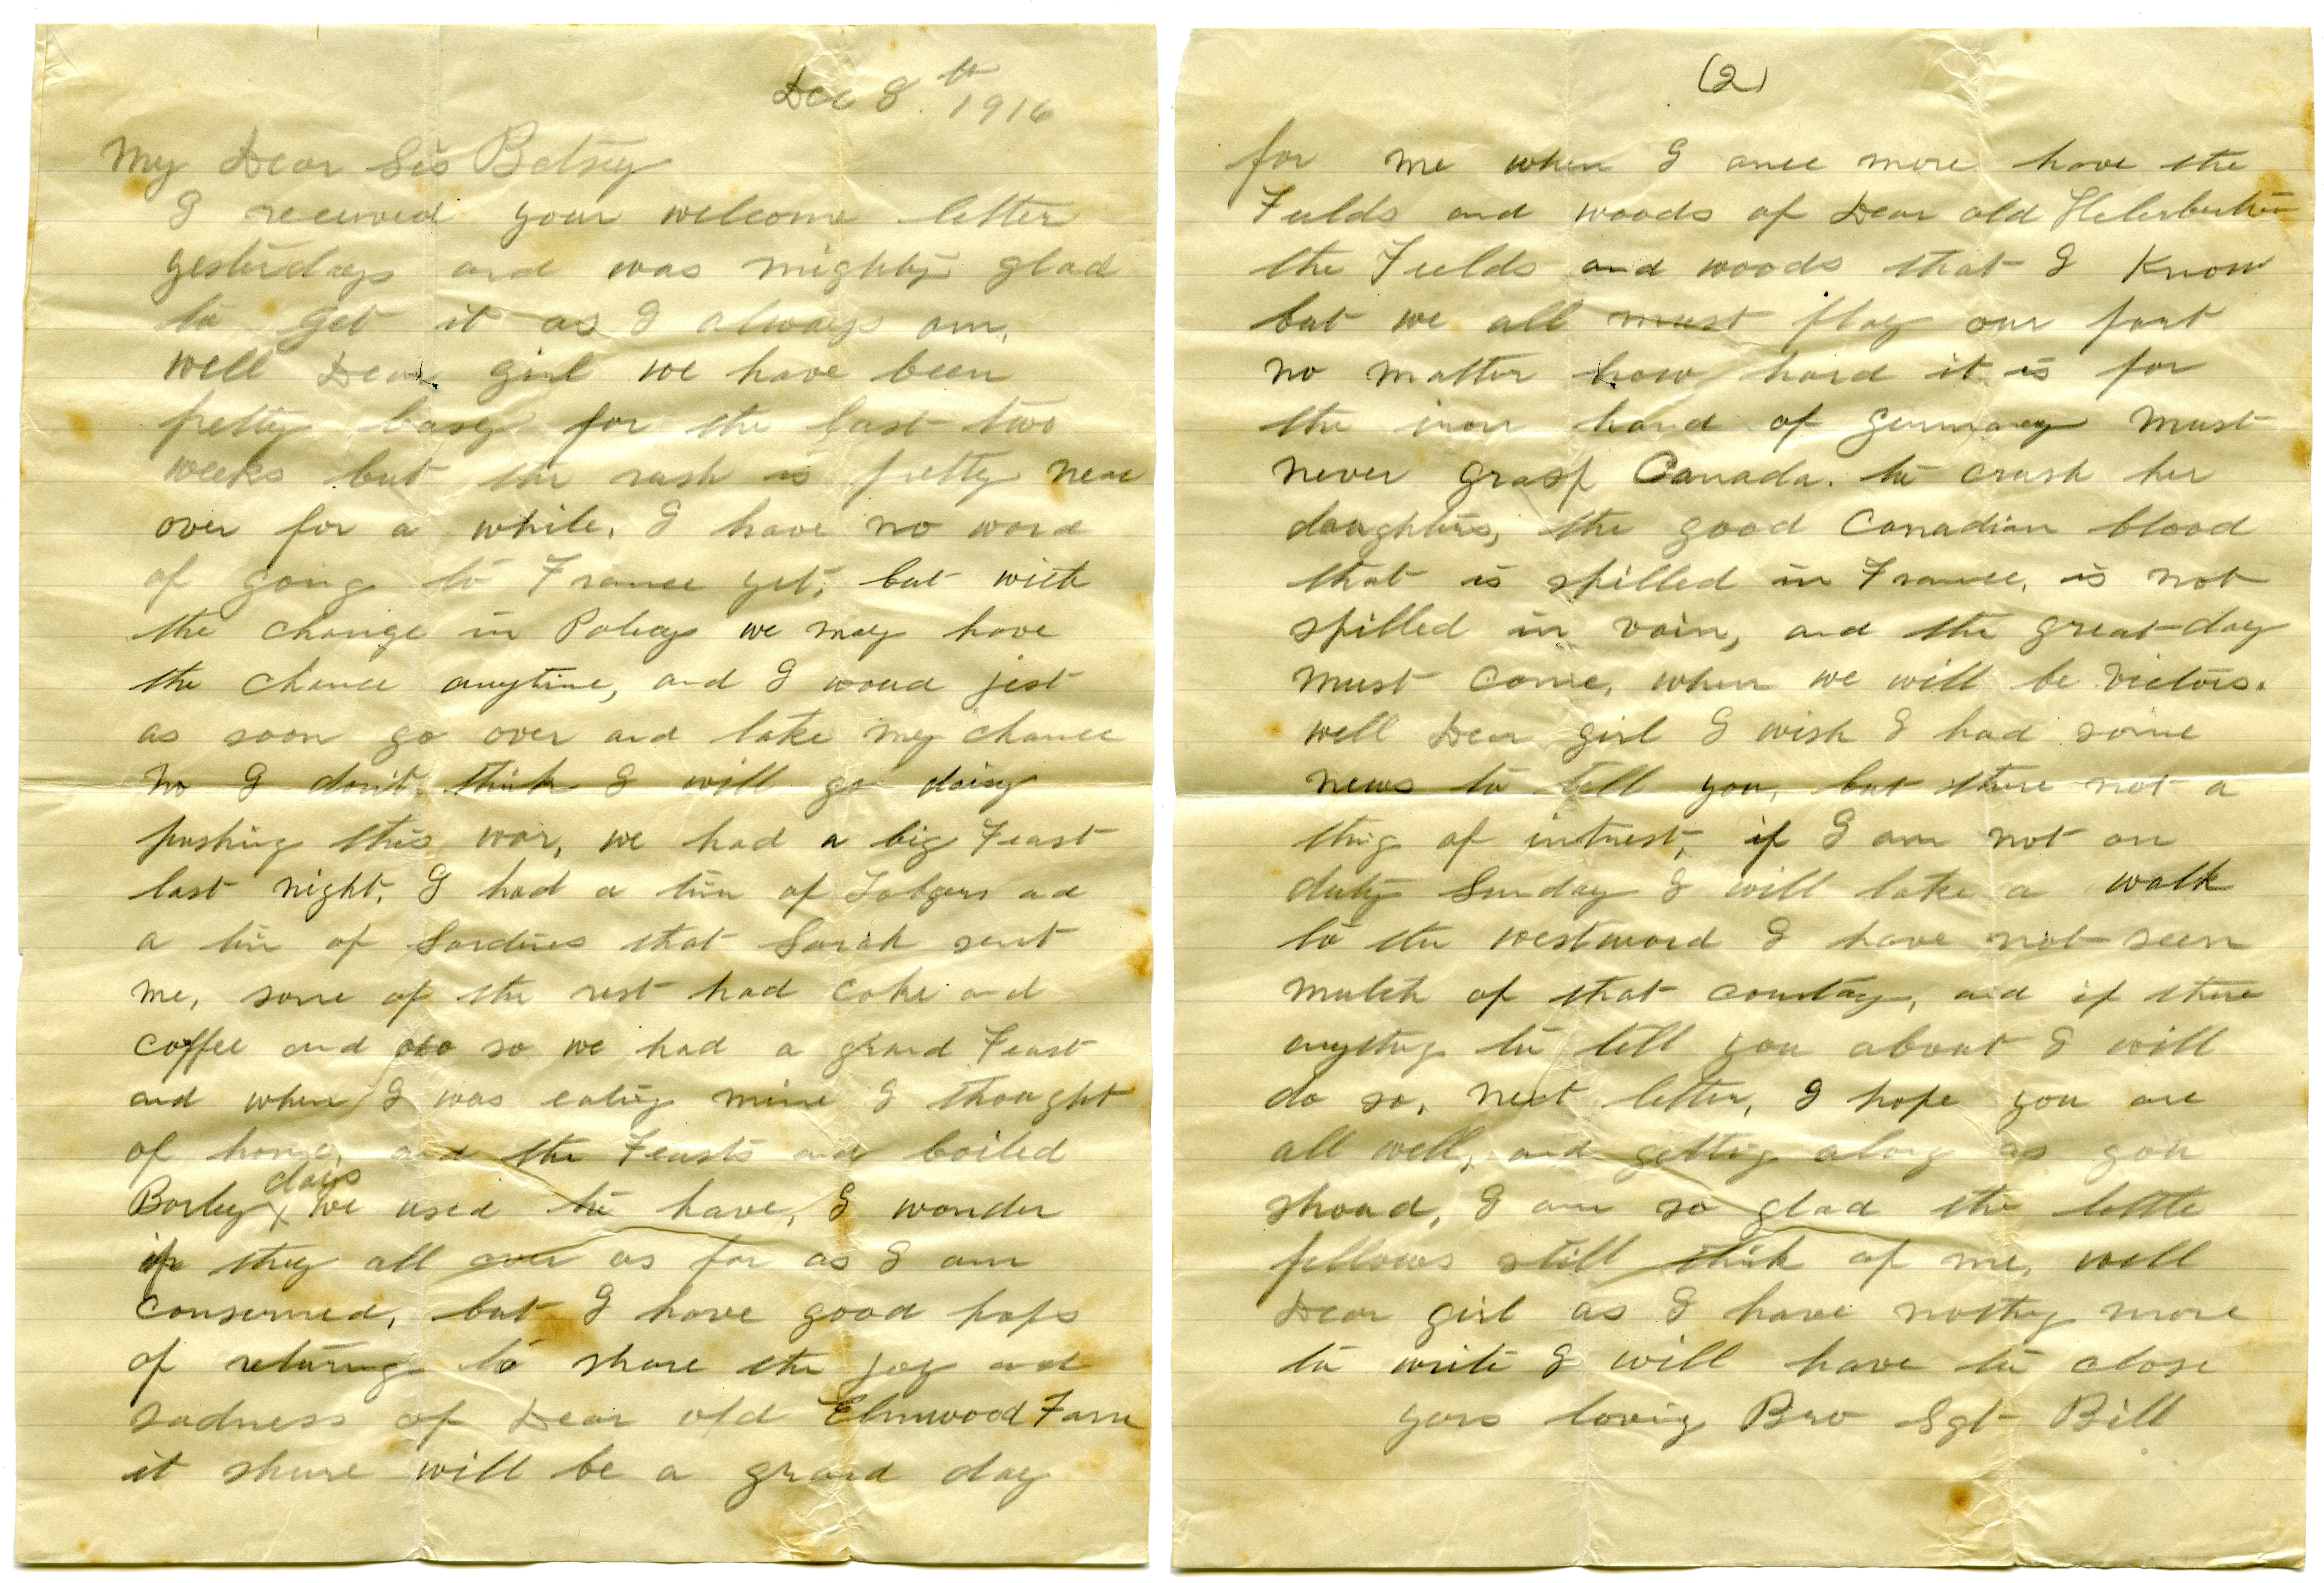 Dec 8th 1916
My Dear Sis Betsey
I received your welcome letter
yesterday and was mighty glad
to get it as I always am,
well Dear girl we have been
pretty busy for the last two
weeks but the rush is pretty near
over for a while, I have no word
of going to France yet, but with
the change in Policy we may have
the chance anytime, and I woud jest
as soon go over and take my chance
No I don't think I will go daisy
pushing this war, we had a big Feast
last night, I had a tin of Lobsters and
a tin of Sardines that Sarah sent
me, some of the rest had cake and
coffee and so we had a grand Feast
and when I was eating mine I thought
of home, and the Feasts and boiled
Barley days we used to have, I wonder
if they all over as far as I am
conserned, but I have good hops
of returing to share the joy and
sadness of Dear old Elmwood Farm
it shure will be a grand day
(2)
for me when I once more have the
Fields and woods of Dear old
the Fields and woods that I Know
but we all must play our part
no matter how hard it is for
the iron hand of germany must
never grasp Canada. to crush her
daughters, the good Canadian blood
that is spilled in France, is not
spilled in vain, and the great day
must come, when we will be victors.
well Dear girl I wish I had some
news to tell you, but there not a
thig of intrest, if I am not on
duty Sunday I will take a walk
to the westward I have not seen
mutch of that country, and if there
anythig to tell you about I will
do so, next letter, I hope you are
all well, and gettig along as you
shoud, I am so glad the little
fellows still think of me, well
Dear girl as I have nothig more
to write I will have to close
yors lovig Bro Sgt Bill